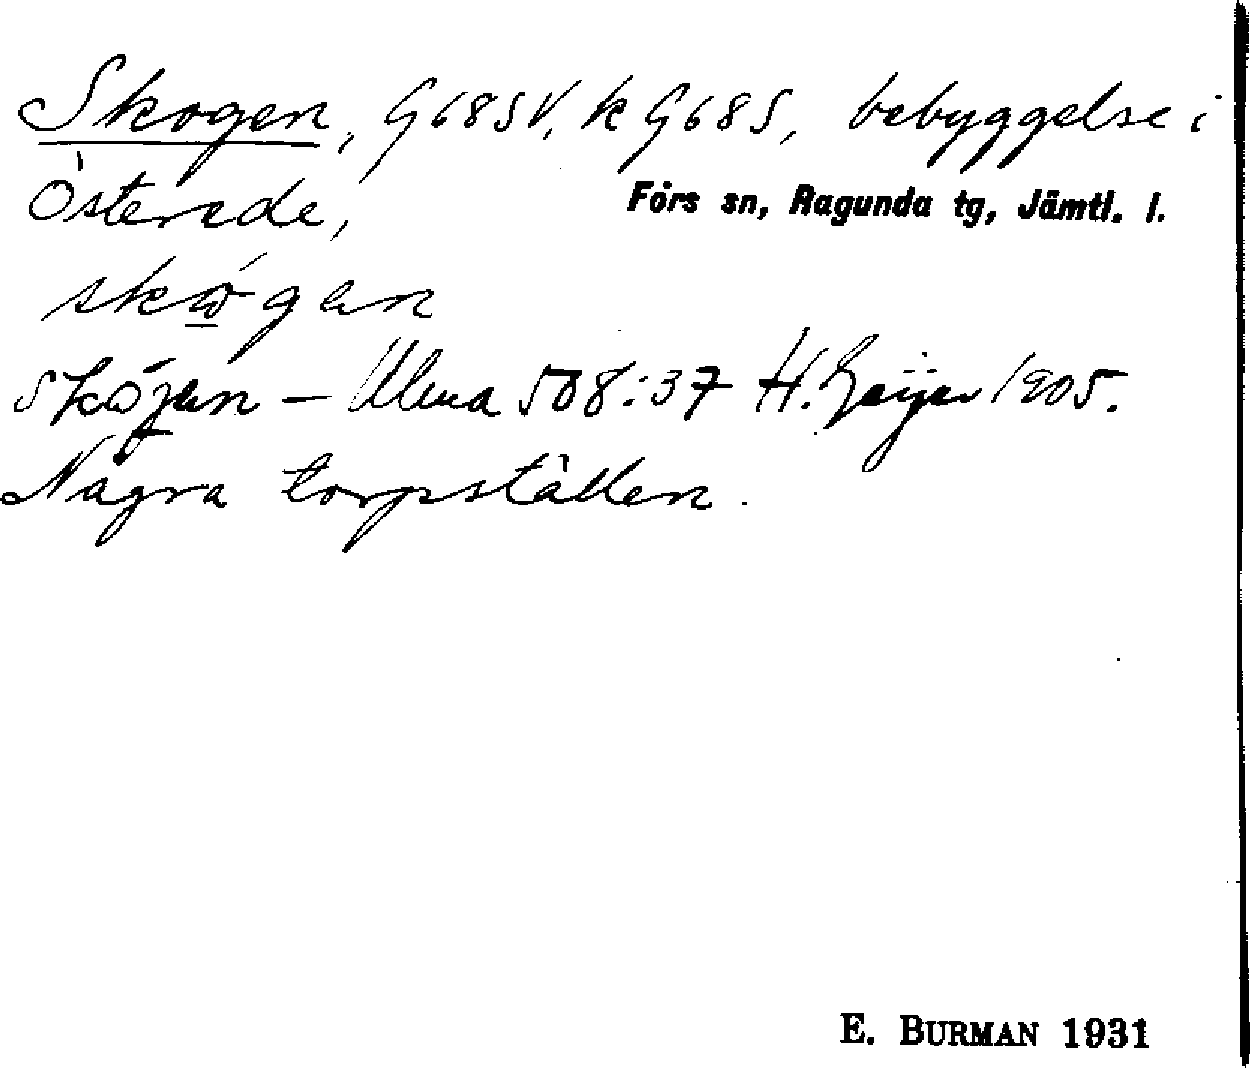 Skogen, G68SV, k G68S, bebyggelse i
Österede, Fors sn, Ragunda tg, Jämtl. l.
Ulma 508:37 H. Geijer 1905.
Några torpställen.
E. BURMAN 1931